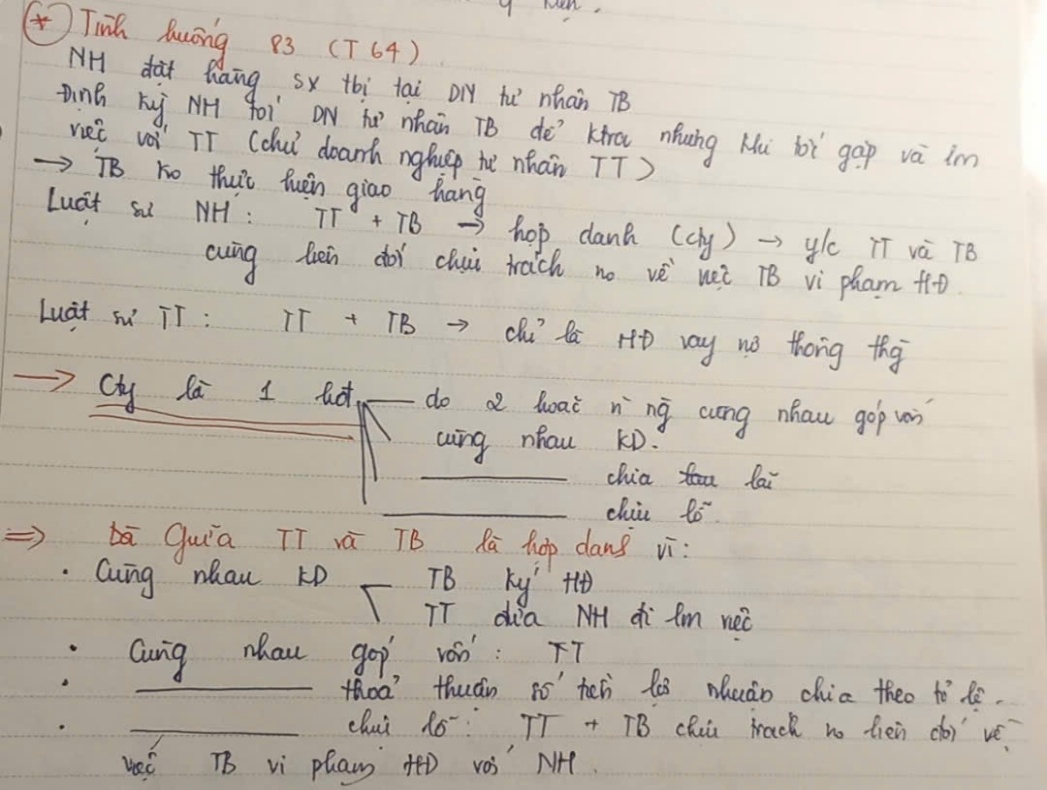 * Tình huống 83 (T 64)
NH đặt hàng sx tbị tại DN tư nhân TB
Định kỳ NH tới DN tư nhân TB để ktra nhưng khi tới gặp và lm
việc với TT (chủ doanh nghiệp tư nhân TT)
→ TB ko thực hiện giao hàng
Luật sư NH: TT + TB → hợp danh (cty) → y/c TT và TB
cùng liên đới chịu trách no về việc TB vi phạm HĐ.
Luật sư TT: TT + TB → chỉ là HĐ vay nợ thông thg
→ Cty là 1 hđ do 2 hoặc n` ng cùng nhau góp vốn
cùng nhau KD.
chia lãi
chịu lỗ.
⇒ Giữa TT và TB là hợp danh vì:
• Cùng nhau KD TB ký HĐ
TT đưa NH đi lm việc
• Cùng nhau góp vốn: TT
• thoả thuận số tiền lợi nhuận chia theo tỷ lệ.
• chịu lỗ: TT + TB chịu trách no liên đới về
việc TB vi phạm HĐ với NH.